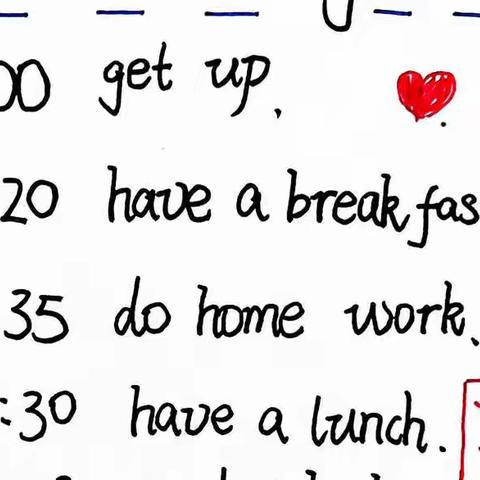 00 get up.
20 have a breakfas
35 do home work.
:30 have a lunch.